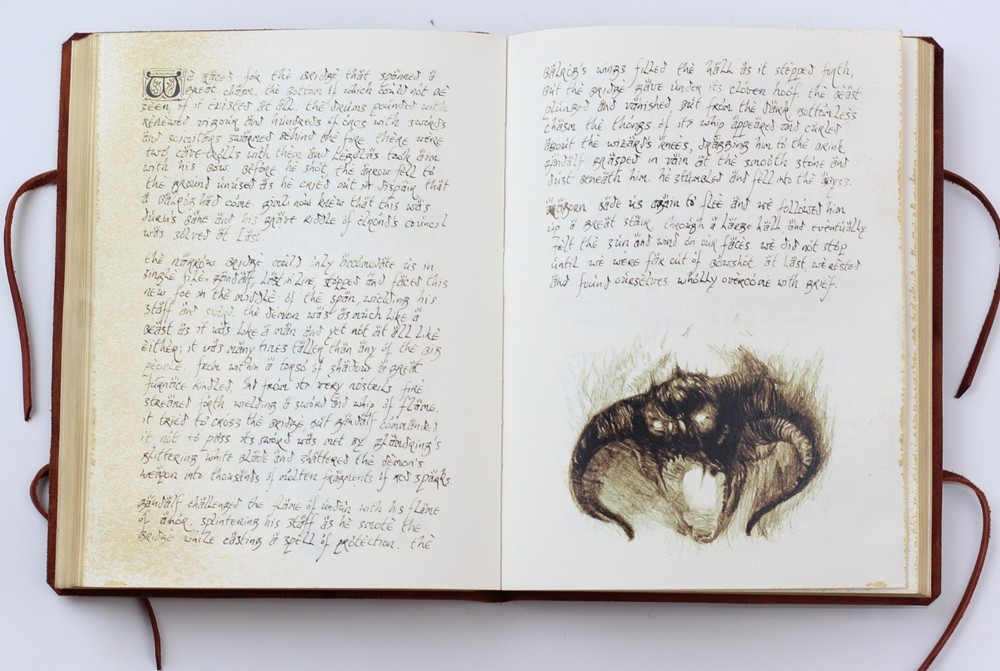 We raced for the bridge that spanned a
great chasm, the bottom of which could not be
seen, if it existed at all. the drums pounded with
renewed vigour and hundreds of orcs with swords
and scimitars swarmed behind the fire. there were
two cave-trolls with them and Legolas took aim
with his bow. before he shot, the arrow fell to
the ground unused as he cried out in dispair that
a Balrog had come. gimli now knew that this was
durin's bane and his great riddle of elrond's council
was solved at last.
the narrow bridge could only accomodate us in
single file. gandalf, last in line, stopped and faced this
new foe in the middle of the span, wielding his
staff and sword. the demon was as much like a
beast as it was like a man and yet not at all like
either; it was many times taller than any of the big
people. from within a torso of shadow a great
furnace kindled and from its very nostrils fire
streamed forth. wielding a sword and whip of flame,
it tried to cross the bridge but gandalf commanded
it not to pass. its sword was met by glamdring's
glittering white blade and shattered the demon's
weapon into thousands of molten fragments of red sparks.
gandalf challenged the flame of undun with his flame
of anor, splintering his staff as he smote the
bridge while casting a spell of protection. the
balrog's wings filled the hall as it stepped forth,
but the bridge gave under its cloven hoof. the beast
plunged and vanished but from the dark bottomless
chasm the thongs of its whip appeared and curled
about the wizards knees, dragging him to the brink.
gandalf grasped in vain at the smooth stone and
dust beneath him. he stumbled and fell into the abyss.
aragorn bade us again to flee and we followed him
up a great stair, through a large hall and eventually
felt the sun and wind on our faces. we did not stop
until we were far out of bowshot. at last we rested
and found ourselves wholly overcome with grief.